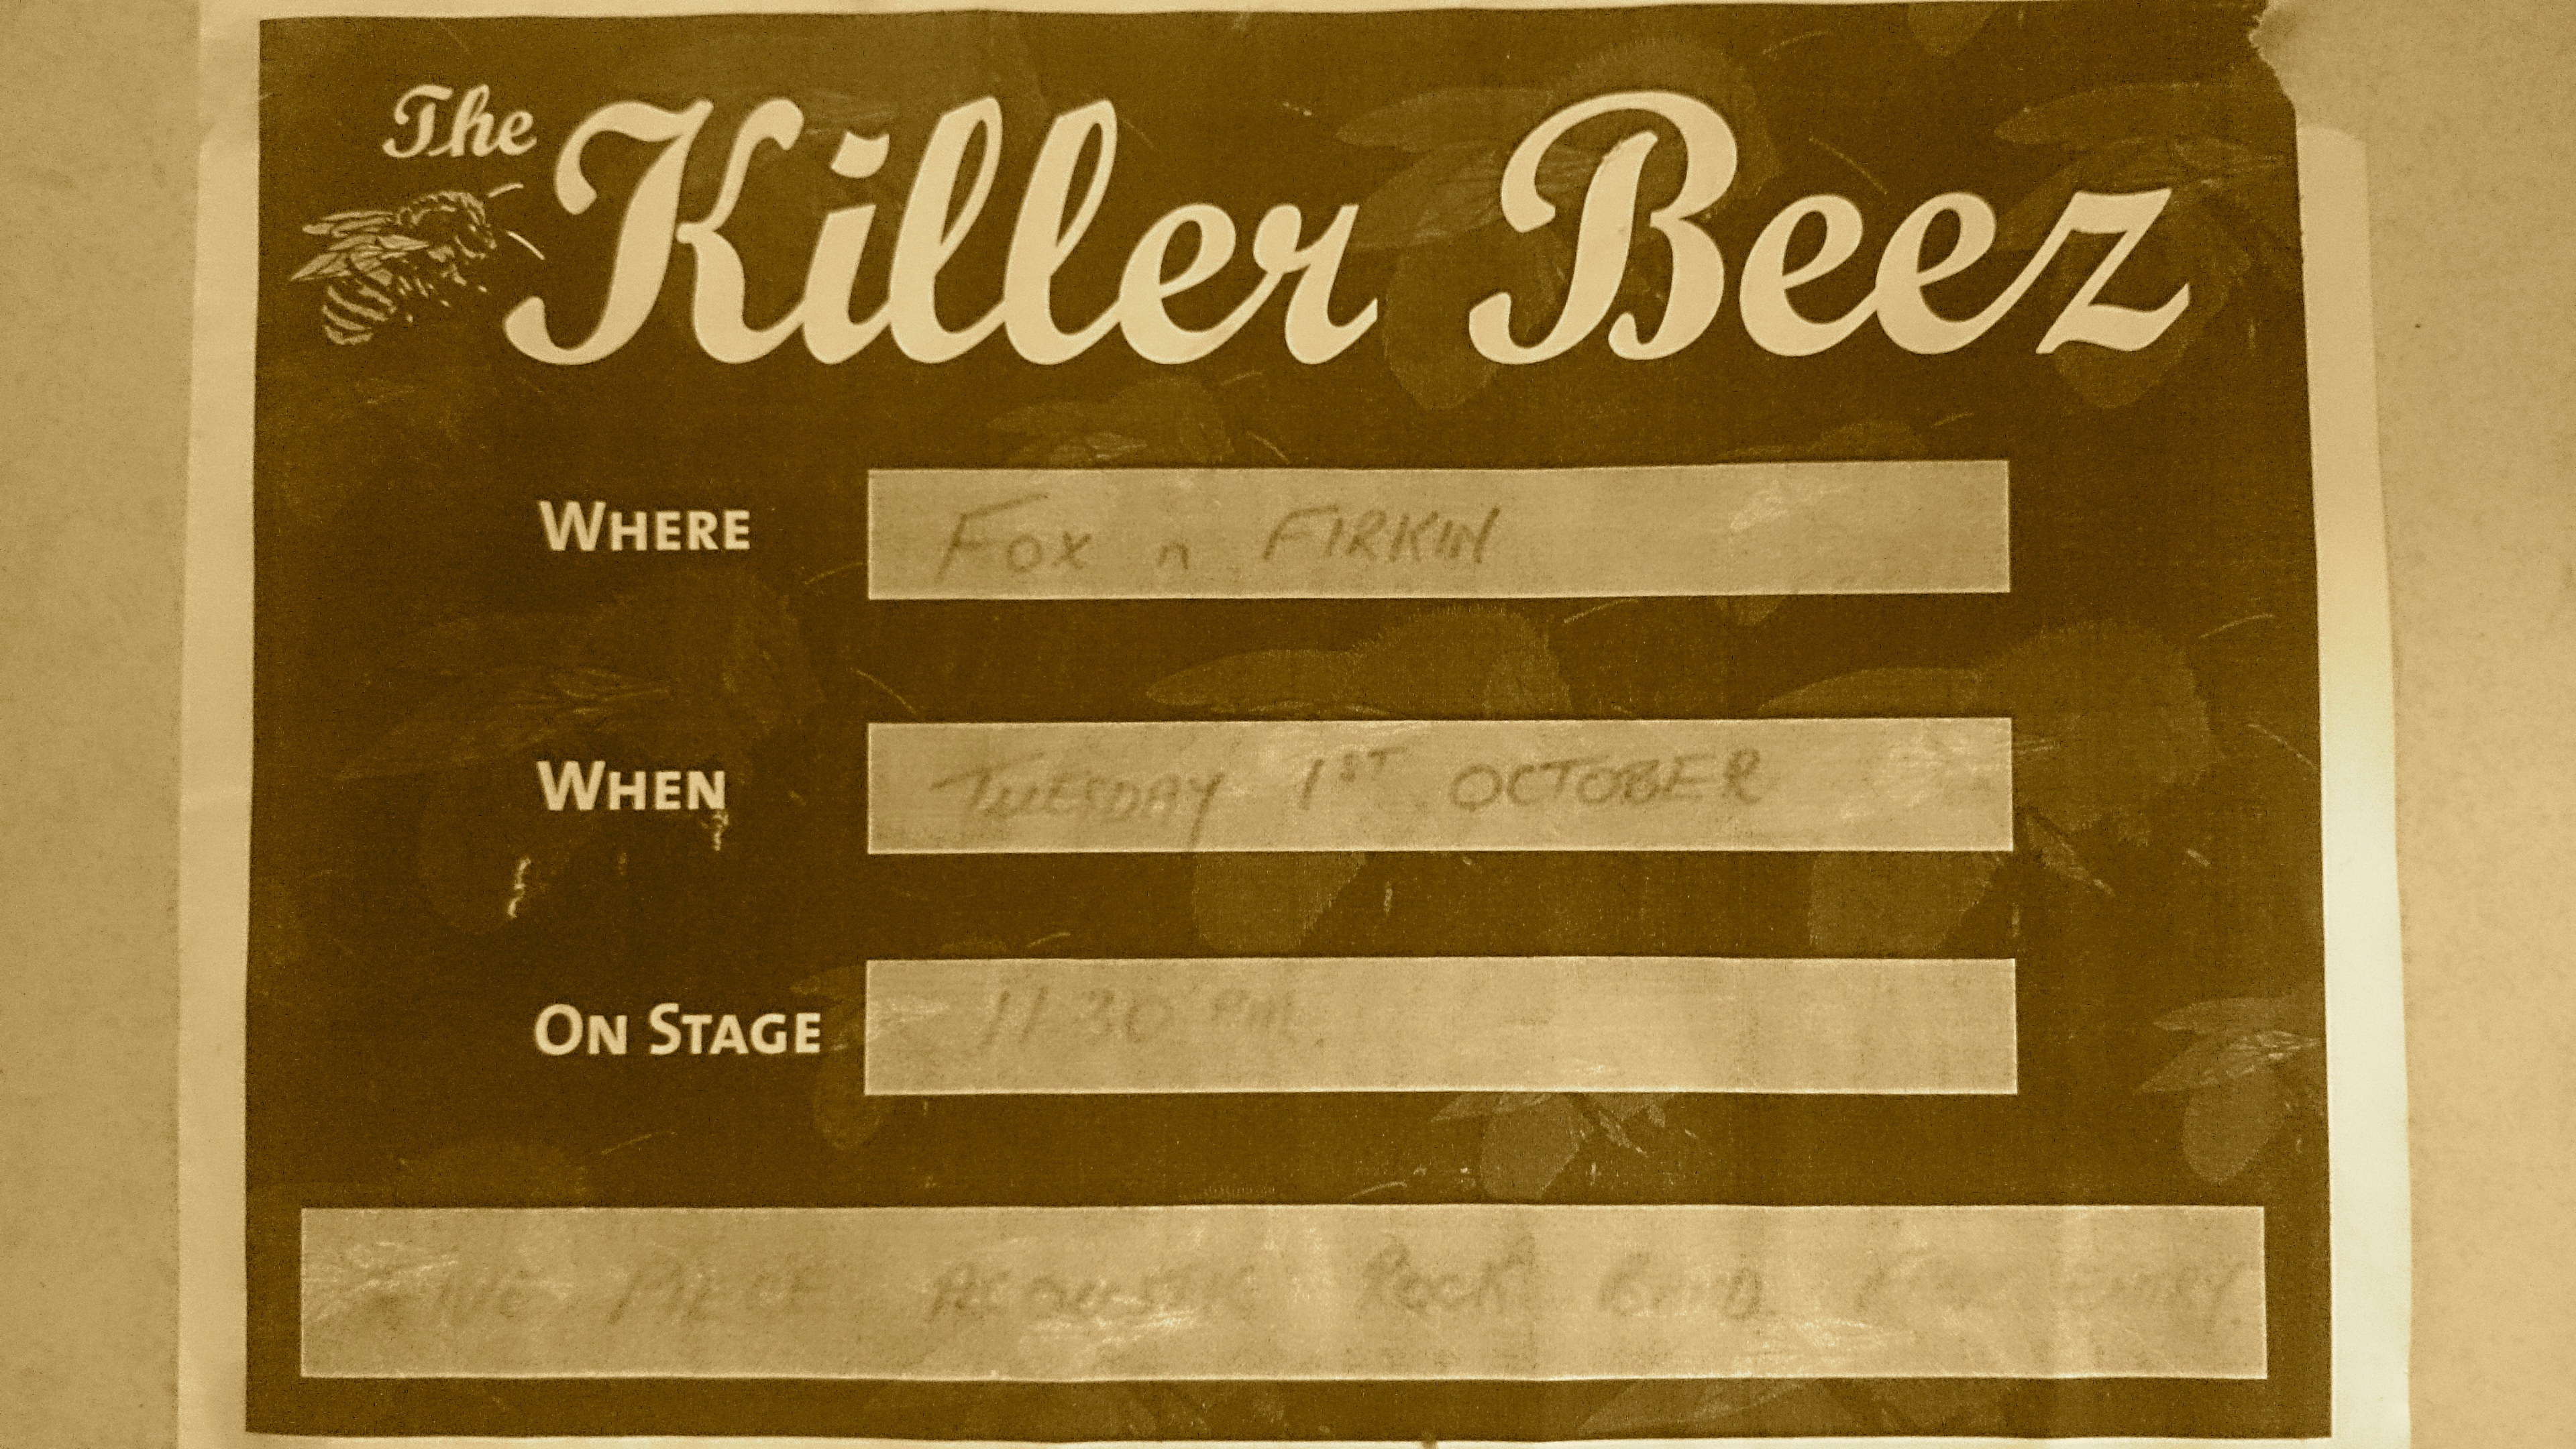 The Killer Beez
WHERE FOX n FIRKIN
WHEN TUESDAY 1ST OCTOBER
ON STAGE 11 30 PM
FIVE PIECE ACOUSTIC ROCK BAND FREE ENTRY